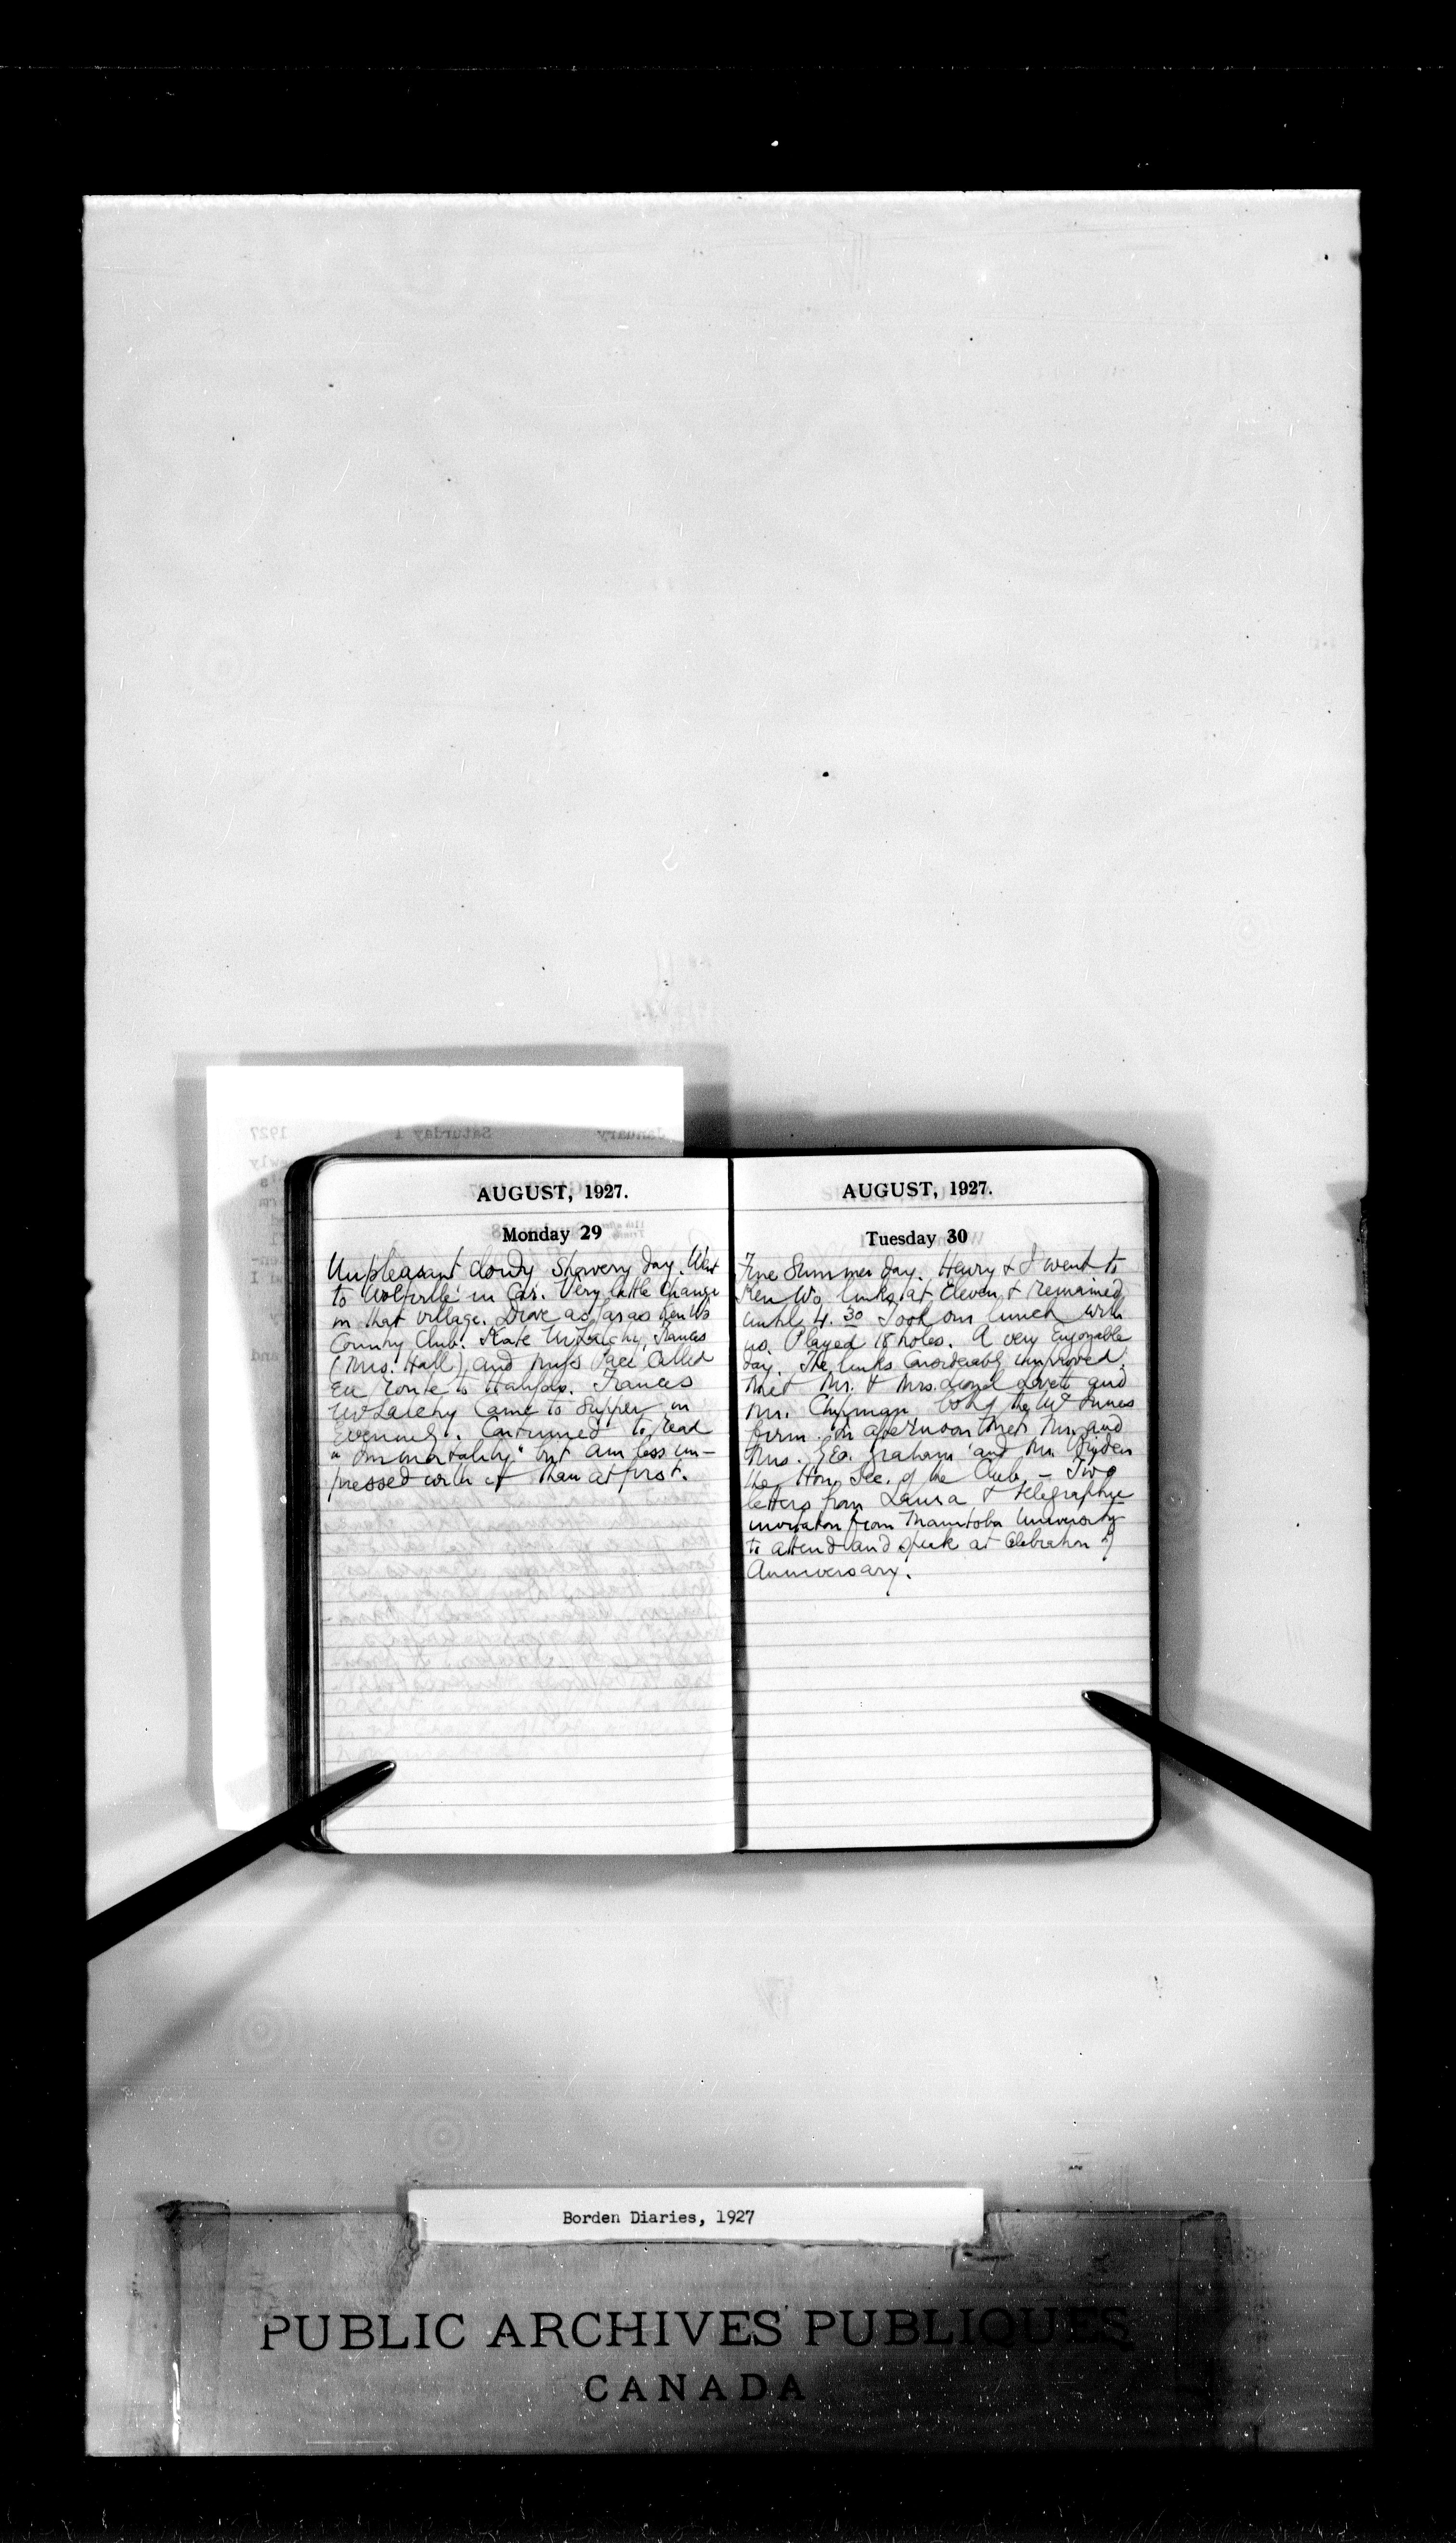 AUGUST, 1927.
Monday 29
Unpleasant cloudy showery day. Went
to Wolfville in Car. Very little change
in that village. Drove as far as Ken Wo
Country Club. Kate McLatchy, Frances
(Mrs. Hall) and Miss called
en route to Halifax. Frances
McLatchy came to supper in
evening. Continued to read
"Immortality" but am less im-
pressed with it than at first.
AUGUST, 1927.
Tuesday 30
Fine Summer day. Henry & I went to
Ken Wo links at eleven & remained
until 4.30 Took our lunch with
us. Played 18 holes. A very enjoyable
day. The links considerably improved.
Met Mr. & Mrs. Lionel Lovett and
Mr. Chipman both of the McInnes
firm. In afternoon met Mr. and
Mrs. Geo. Graham and Mr.
the Hon. Sec. of the Club. - Two
letters from Laura & telegraphic
invitation from Manitoba University
to attend and speak at celebration of
Anniversary.
Borden Diaries, 1927
PUBLIC ARCHIVES PUBLIQUES
CANADA